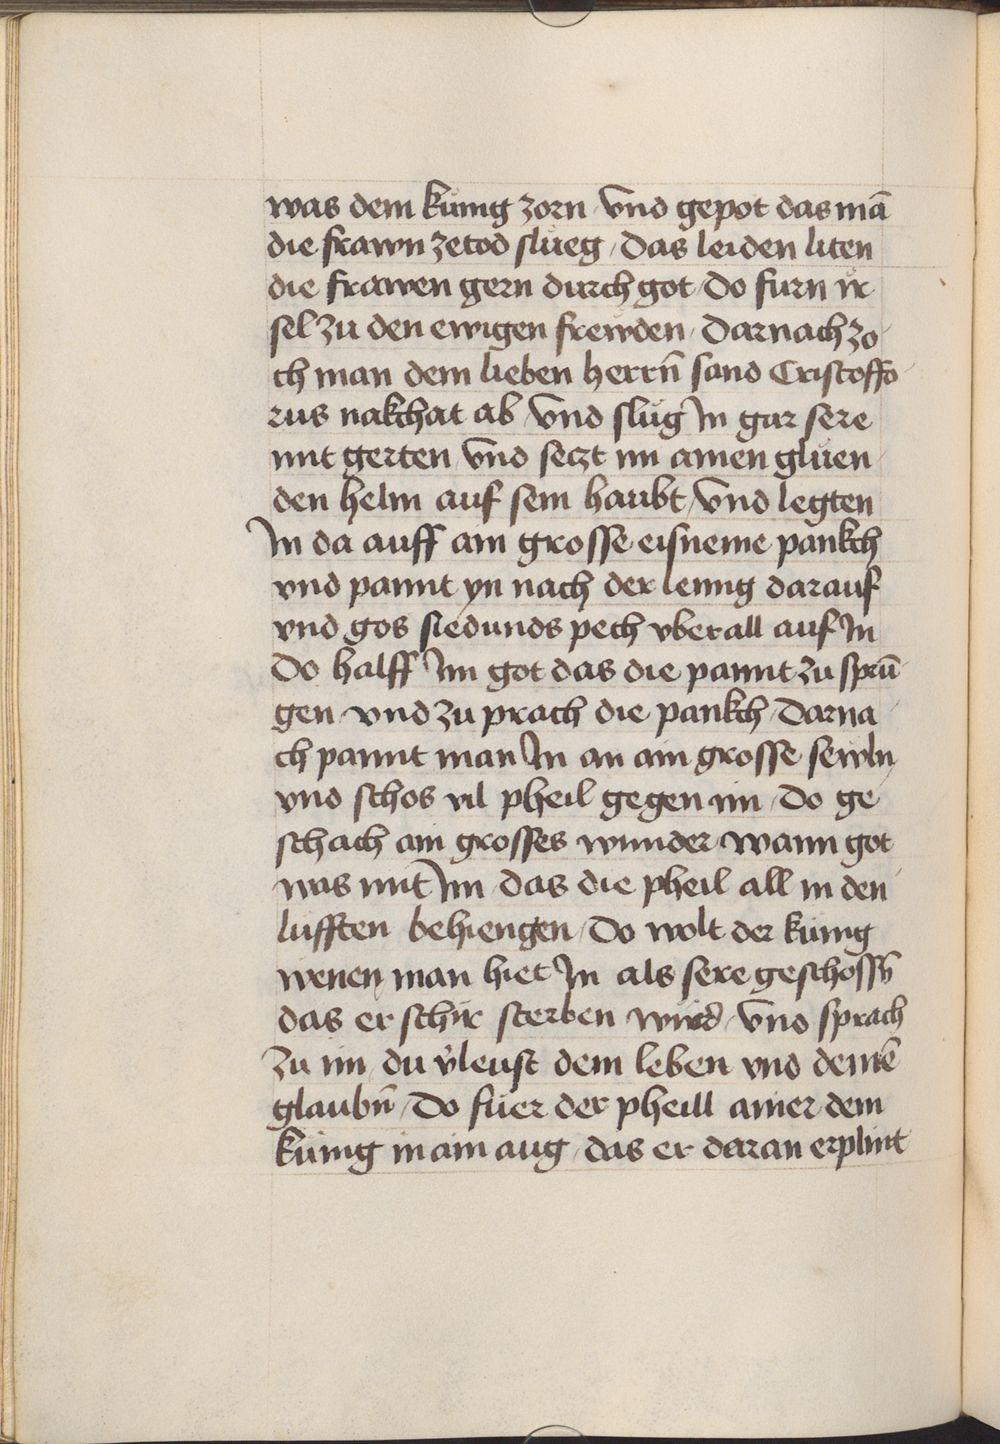 was dem kunig zorn / vnd gepot das mā
die frawn zetod slueg / das leiden liten
die frawen gern durch got / do furn ir
sel zu den ewigen frewden / Darnach zo
ch man dem lieben herrn̄ sand Cristoffo
rus nakchat ab / vnd slůg In gar sere
mit gerten / vnd seczt im ainen glüen
den helm auf sein haubt / vnd legten
In da auff ain grosse eisneine pankch
vnd pannt yn nach der leng darauf
vnd gos siedunds pech vberall auf In
Do halff Im got das die pannt zu sprū
gen / vnd zu prach die pankch / Darna
ch pannt man In an ain grosse sewln
vnd schos vil pheil gegen im / do ge
schach ain grosses wunder / wann got
was mit Im / das die pheil all in den
lufften behiengen / Do wolt der kunig
wenen man hiet In als sere geschossn̄
das er schir sterben würd / vnd sprach
zu im / du v̉leust dein leben vnd deinē
glaubn̄ / Do füer der pheill ainer dem
kunig in ain aug / das er daran erplint